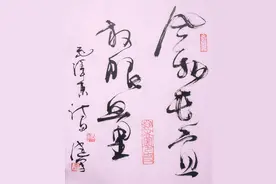 风物长宜
放眼量
毛泽东诗句